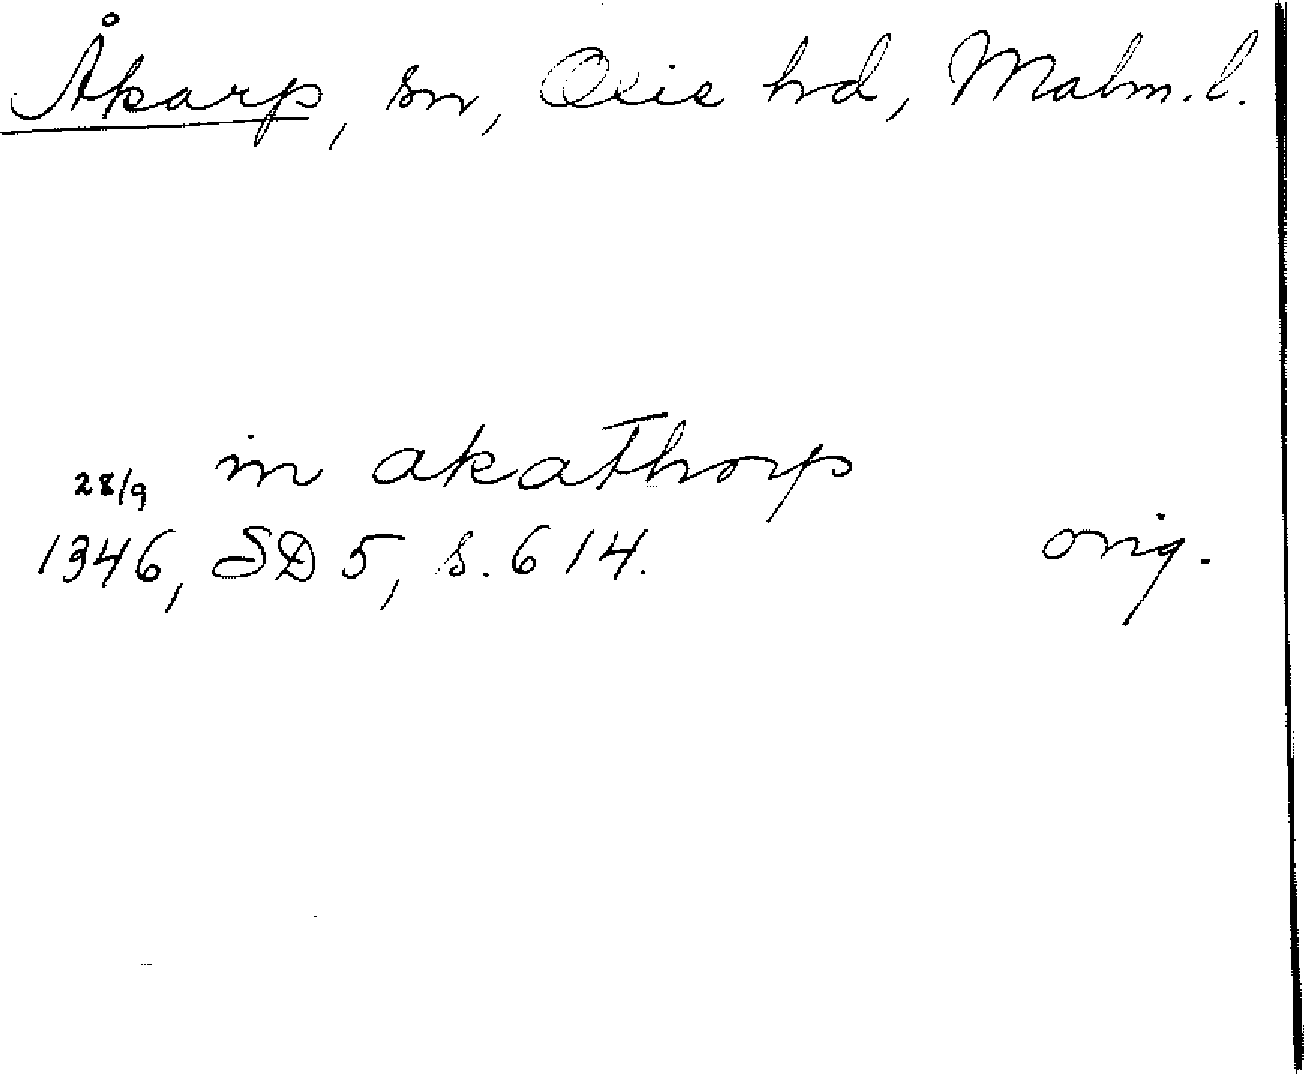 Åkarp, sn, Oxie hd, Malm. l.
in akathorp
28/9
1346, SD 5, s. 614. orig.